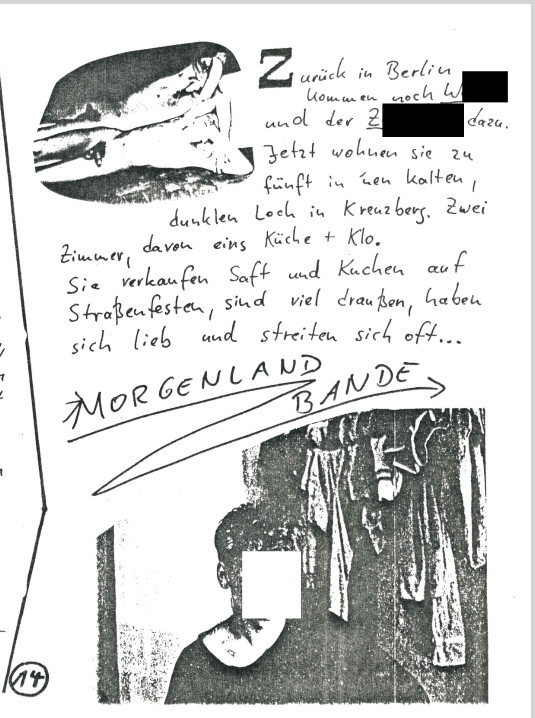 Zurück in Berlin
kommen noch W
und der Z dazu.
Jetzt wohnen sie zu
fünft in 'nen kalten,
dunklen Loch in Kreuzberg. Zwei
Zimmer, davon eins Küche + Klo.
Sie verkaufen Saft und Kuchen auf
Straßenfesten, sind viel draußen, haben
sich lieb und streiten sich oft...
MORGENLAND
BANDE
14